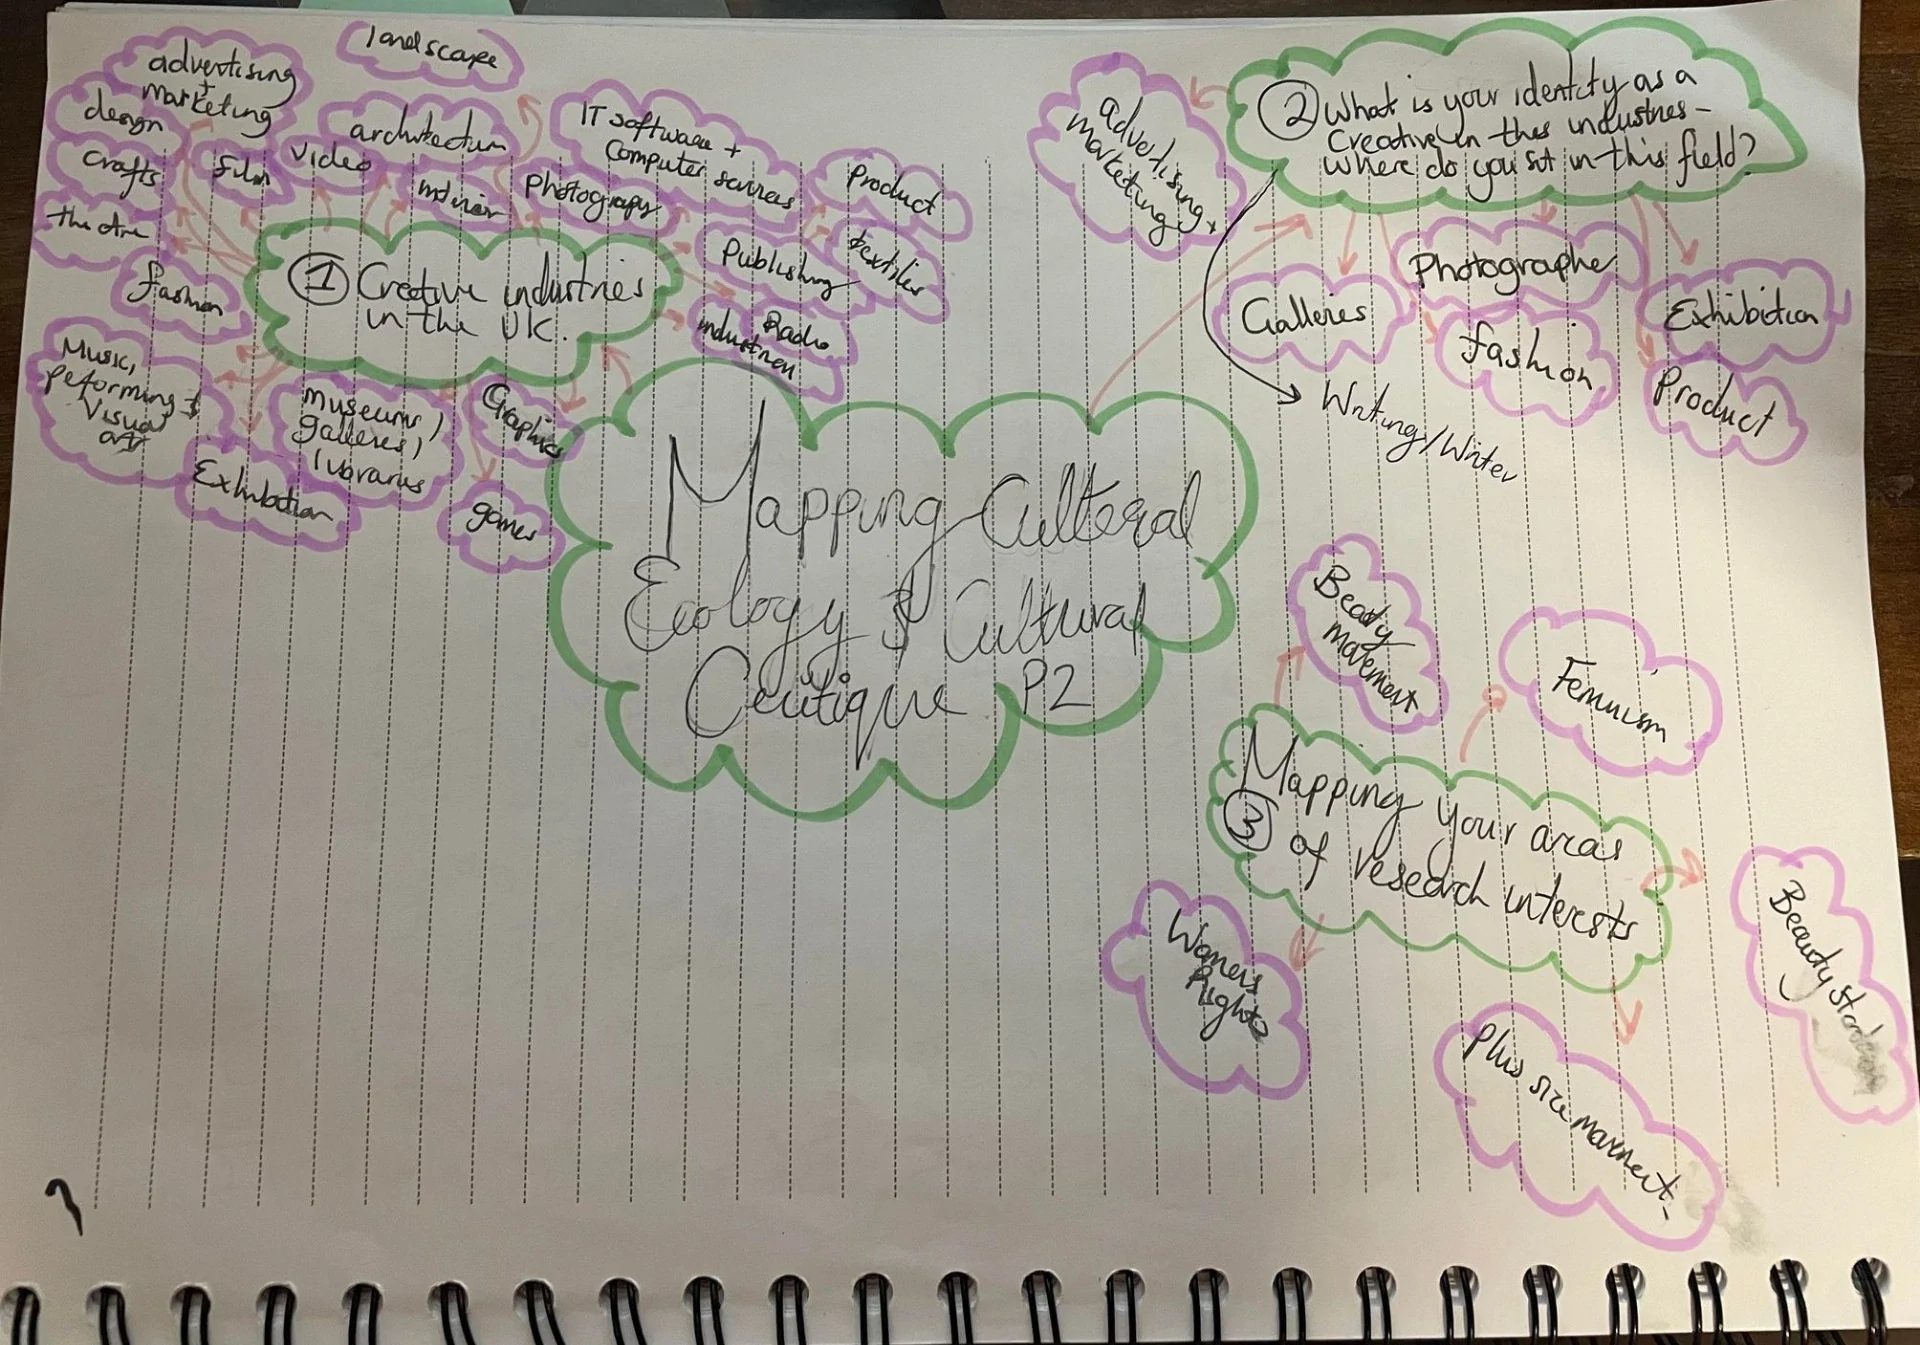 Mapping Cultural
Ecology & Cultural
Critique P2
① Creative industries
in the UK.
landscape
advertising
+
marketing
design
crafts
film
video
architecture
interior
Photography
IT software +
Computer services
Product
textiles
Publishing
Radio
fashion
Music,
peforming &
Visual
art
Exhibition
museums/
galleries,
libraries
Graphics
games
② What is your identity as a
Creative in the industries -
Where do you sit in this field?
advertising +
marketing
Galleries
Photographe
fashion
Exhibition
Product
Writing/Writer
③ Mapping your areas
of research interests
Beauty
movement
Feminism
Beauty
Plus size movement
Womens
Rights